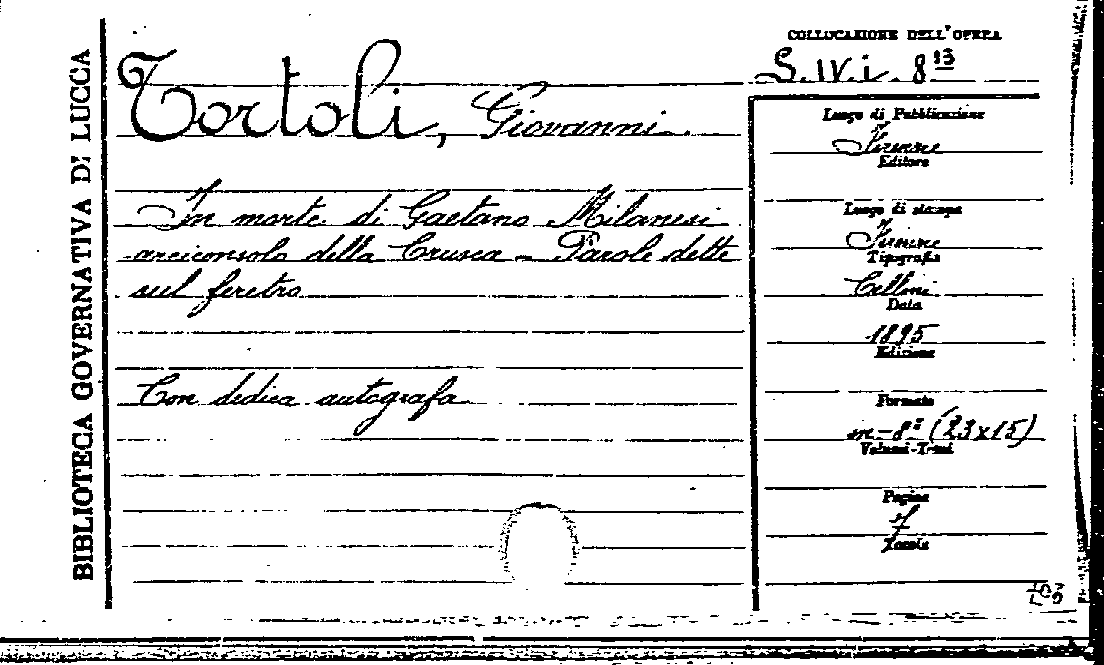 BIBLIOTECA GOVERNATIVA DI LUCCA
COLLOCAZIONE DELL'OPERA
S.IV.i. 8¹³
Tortoli, Giovanni
In morte di Gaetano Milanesi
arciconsolo della Crusca - Parole dette
sul feretro
Con dedica autografa
Luogo di Pubblicazione
Firenze
Editore
Luogo di stampa
Firenze
Tipografia
Cellini
Data
1895
Edizione
Formato
in-8° (23x15)
Volumi-Tomi
Pagine
7
Tavole